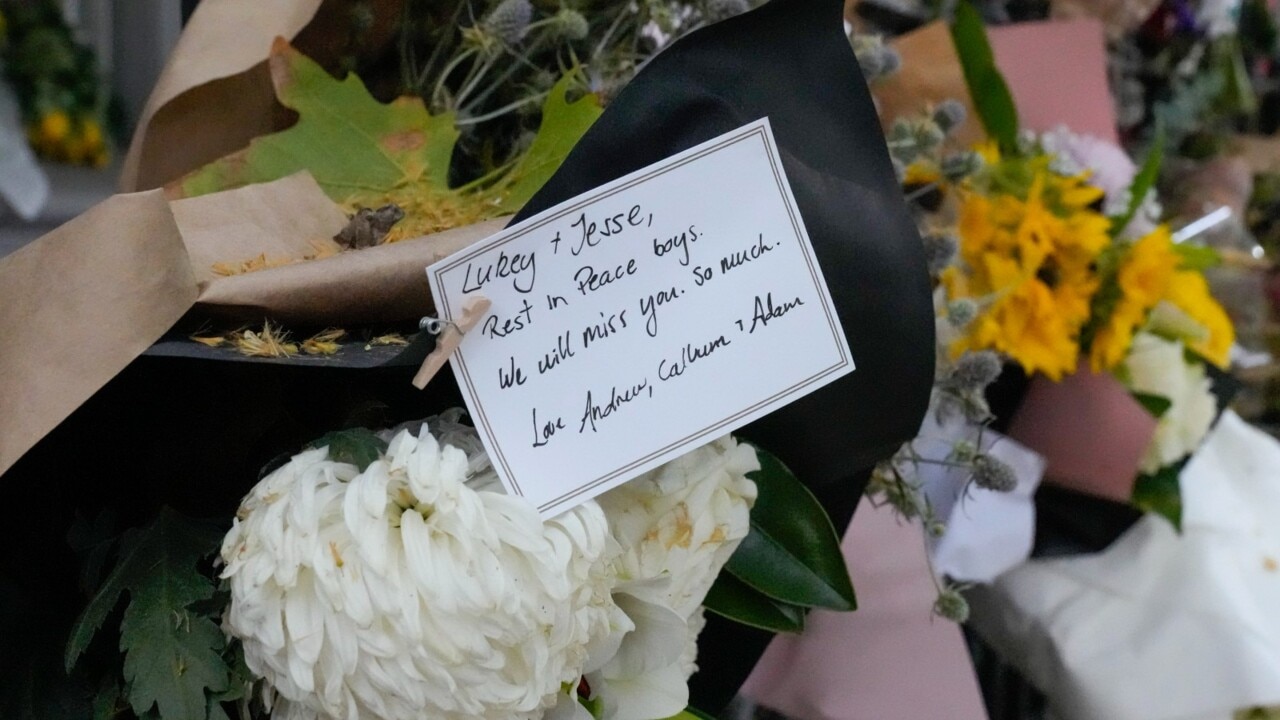 Lukey + Jesse,
Rest in Peace boys.
We will miss you. so much.
Love Andrew, Callum + Adam